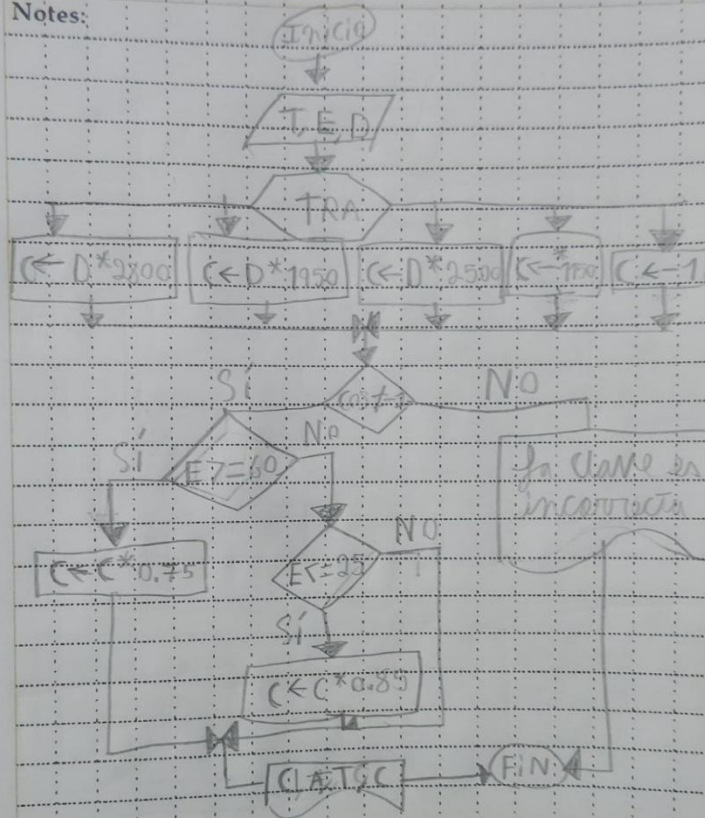 Notes:
Inicio
T, E, D
TRA
C ← D * 2800
C ← D * 1950
C ← D * 2500
C ← *
C ← -1
Sí
NO
Sí
E >= 60
No
La clave es
incorrecta
C ← C * 0.75
E <= 25
NO
Sí
C ← C * 0.85
FiN